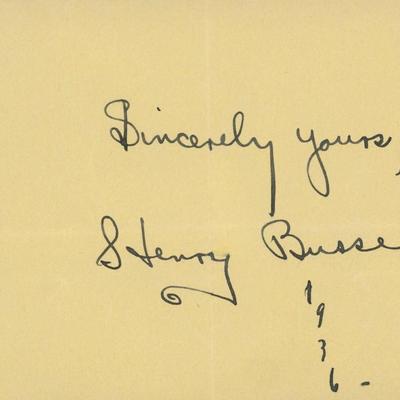 Sincerely yours,
Henry Busse
1
9
3
6 -